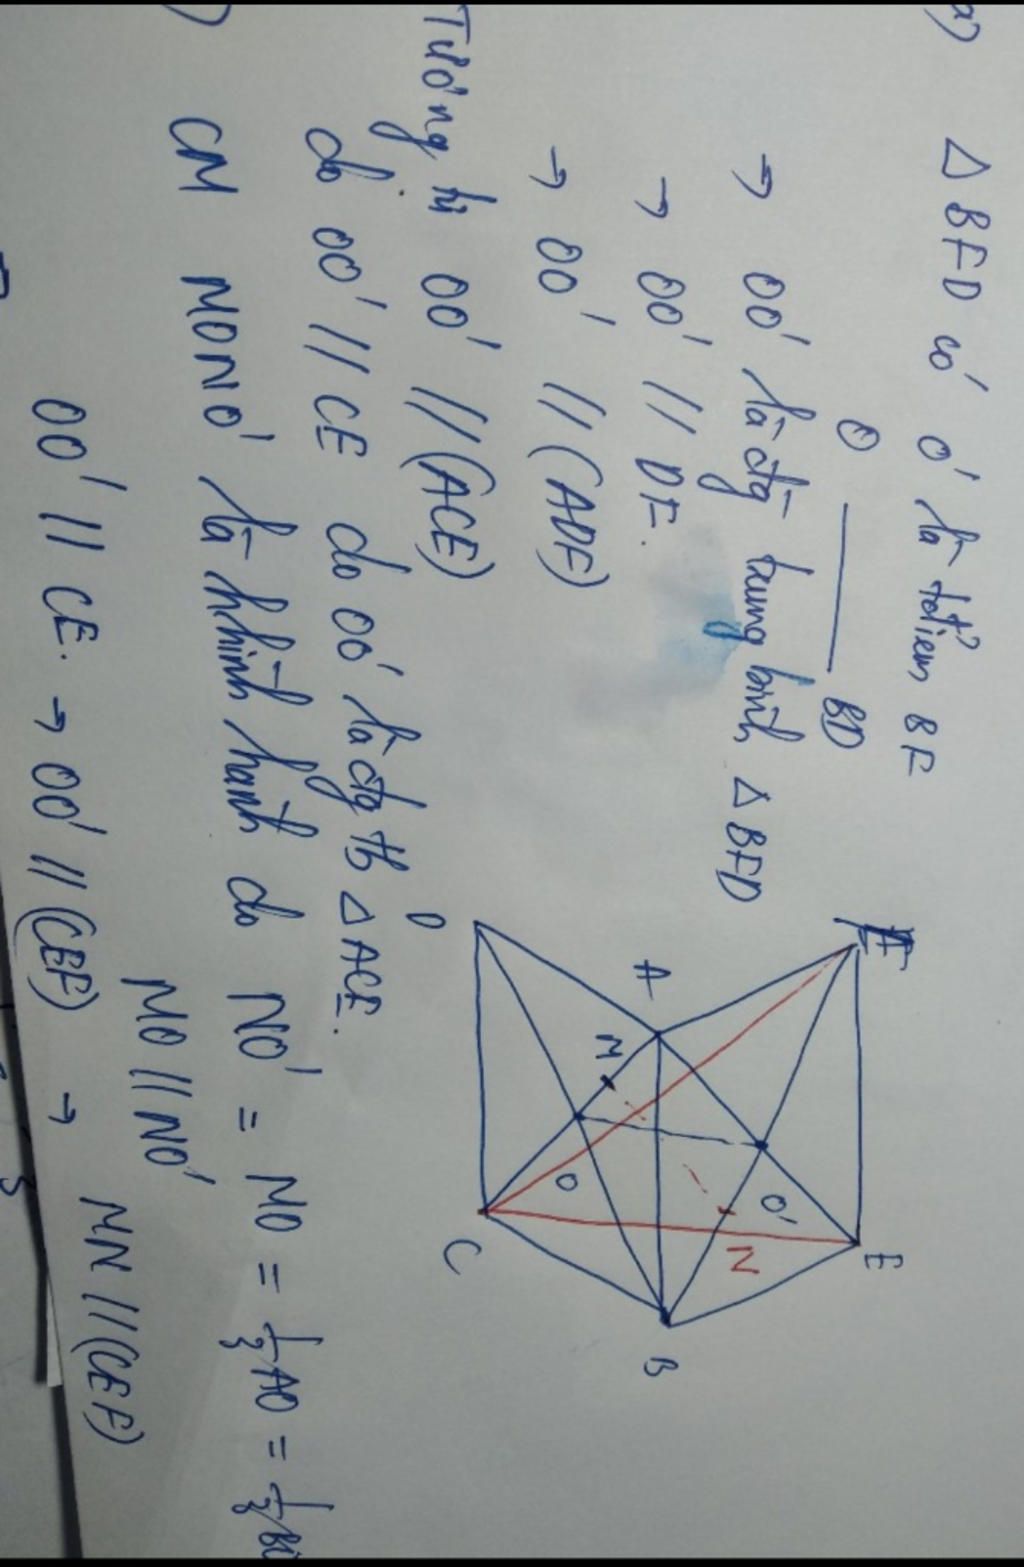 a) Δ BFD có O' là tđiểm BF
O ——— BD
→ OO' là đg trung bình Δ BFD
→ OO' // DF.
→ OO' // (ADF)
Tương tự OO' // (ACE)
do OO' // CE do OO' là đg tb Δ ACE.
) CM MONO' là hình hành do NO' = MO = 1/3 AO = 1/3
MO // NO'
OO' // CE. → OO' // (CEF) → MN // (CEF)
E
D
A
M
O
O'
E
C
N
B